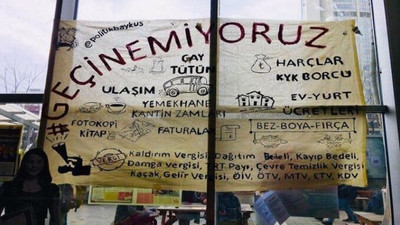 @politikbaykus
#GEÇİNEMİYORUZ
ÇAY
TÜTÜN
HARÇLAR
KYK BORCU
ULAŞIM
YEMEKHANE
KANTİN ZAMLARI
EV-YURT
ÜCRETLERİ
FOTOKOPİ
KİTAP
FATURALAR
BEZ-BOYA-FIRÇA
VERGİ
Kaldırım Vergisi, Dağıtım Bedeli, Kayıp Bedeli,
Damga Vergisi, TRT Payı, Çevre Temizlik Vergisi
Kaçak, Gelir Vergisi, ÖİV, ÖTV, MTV, ETV, KDV